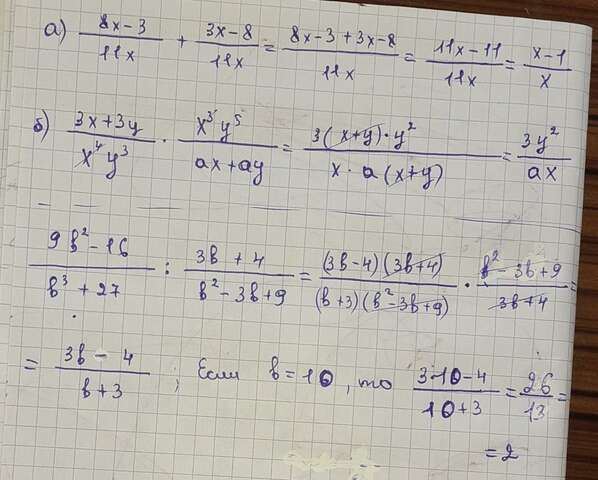 а) (8x-3)/(11x) + (3x-8)/(11x) = (8x-3+3x-8)/(11x) = (11x-11)/(11x) = (x-1)/x
б) (3x+3y)/(x⁴y³) · (x³y⁵)/(ax+ay) = (3(x+y)·y²)/(x·a(x+y)) = (3y²)/(ax)
(9b²-16)/(b³+27) : (3b+4)/(b²-3b+9) = ((3b-4)(3b+4))/((b+3)(b²-3b+9)) · (b²-3b+9)/(3b+4) =
= (3b-4)/(b+3); Если b=10, то (3·10-4)/(10+3) = 26/13 =
= 2